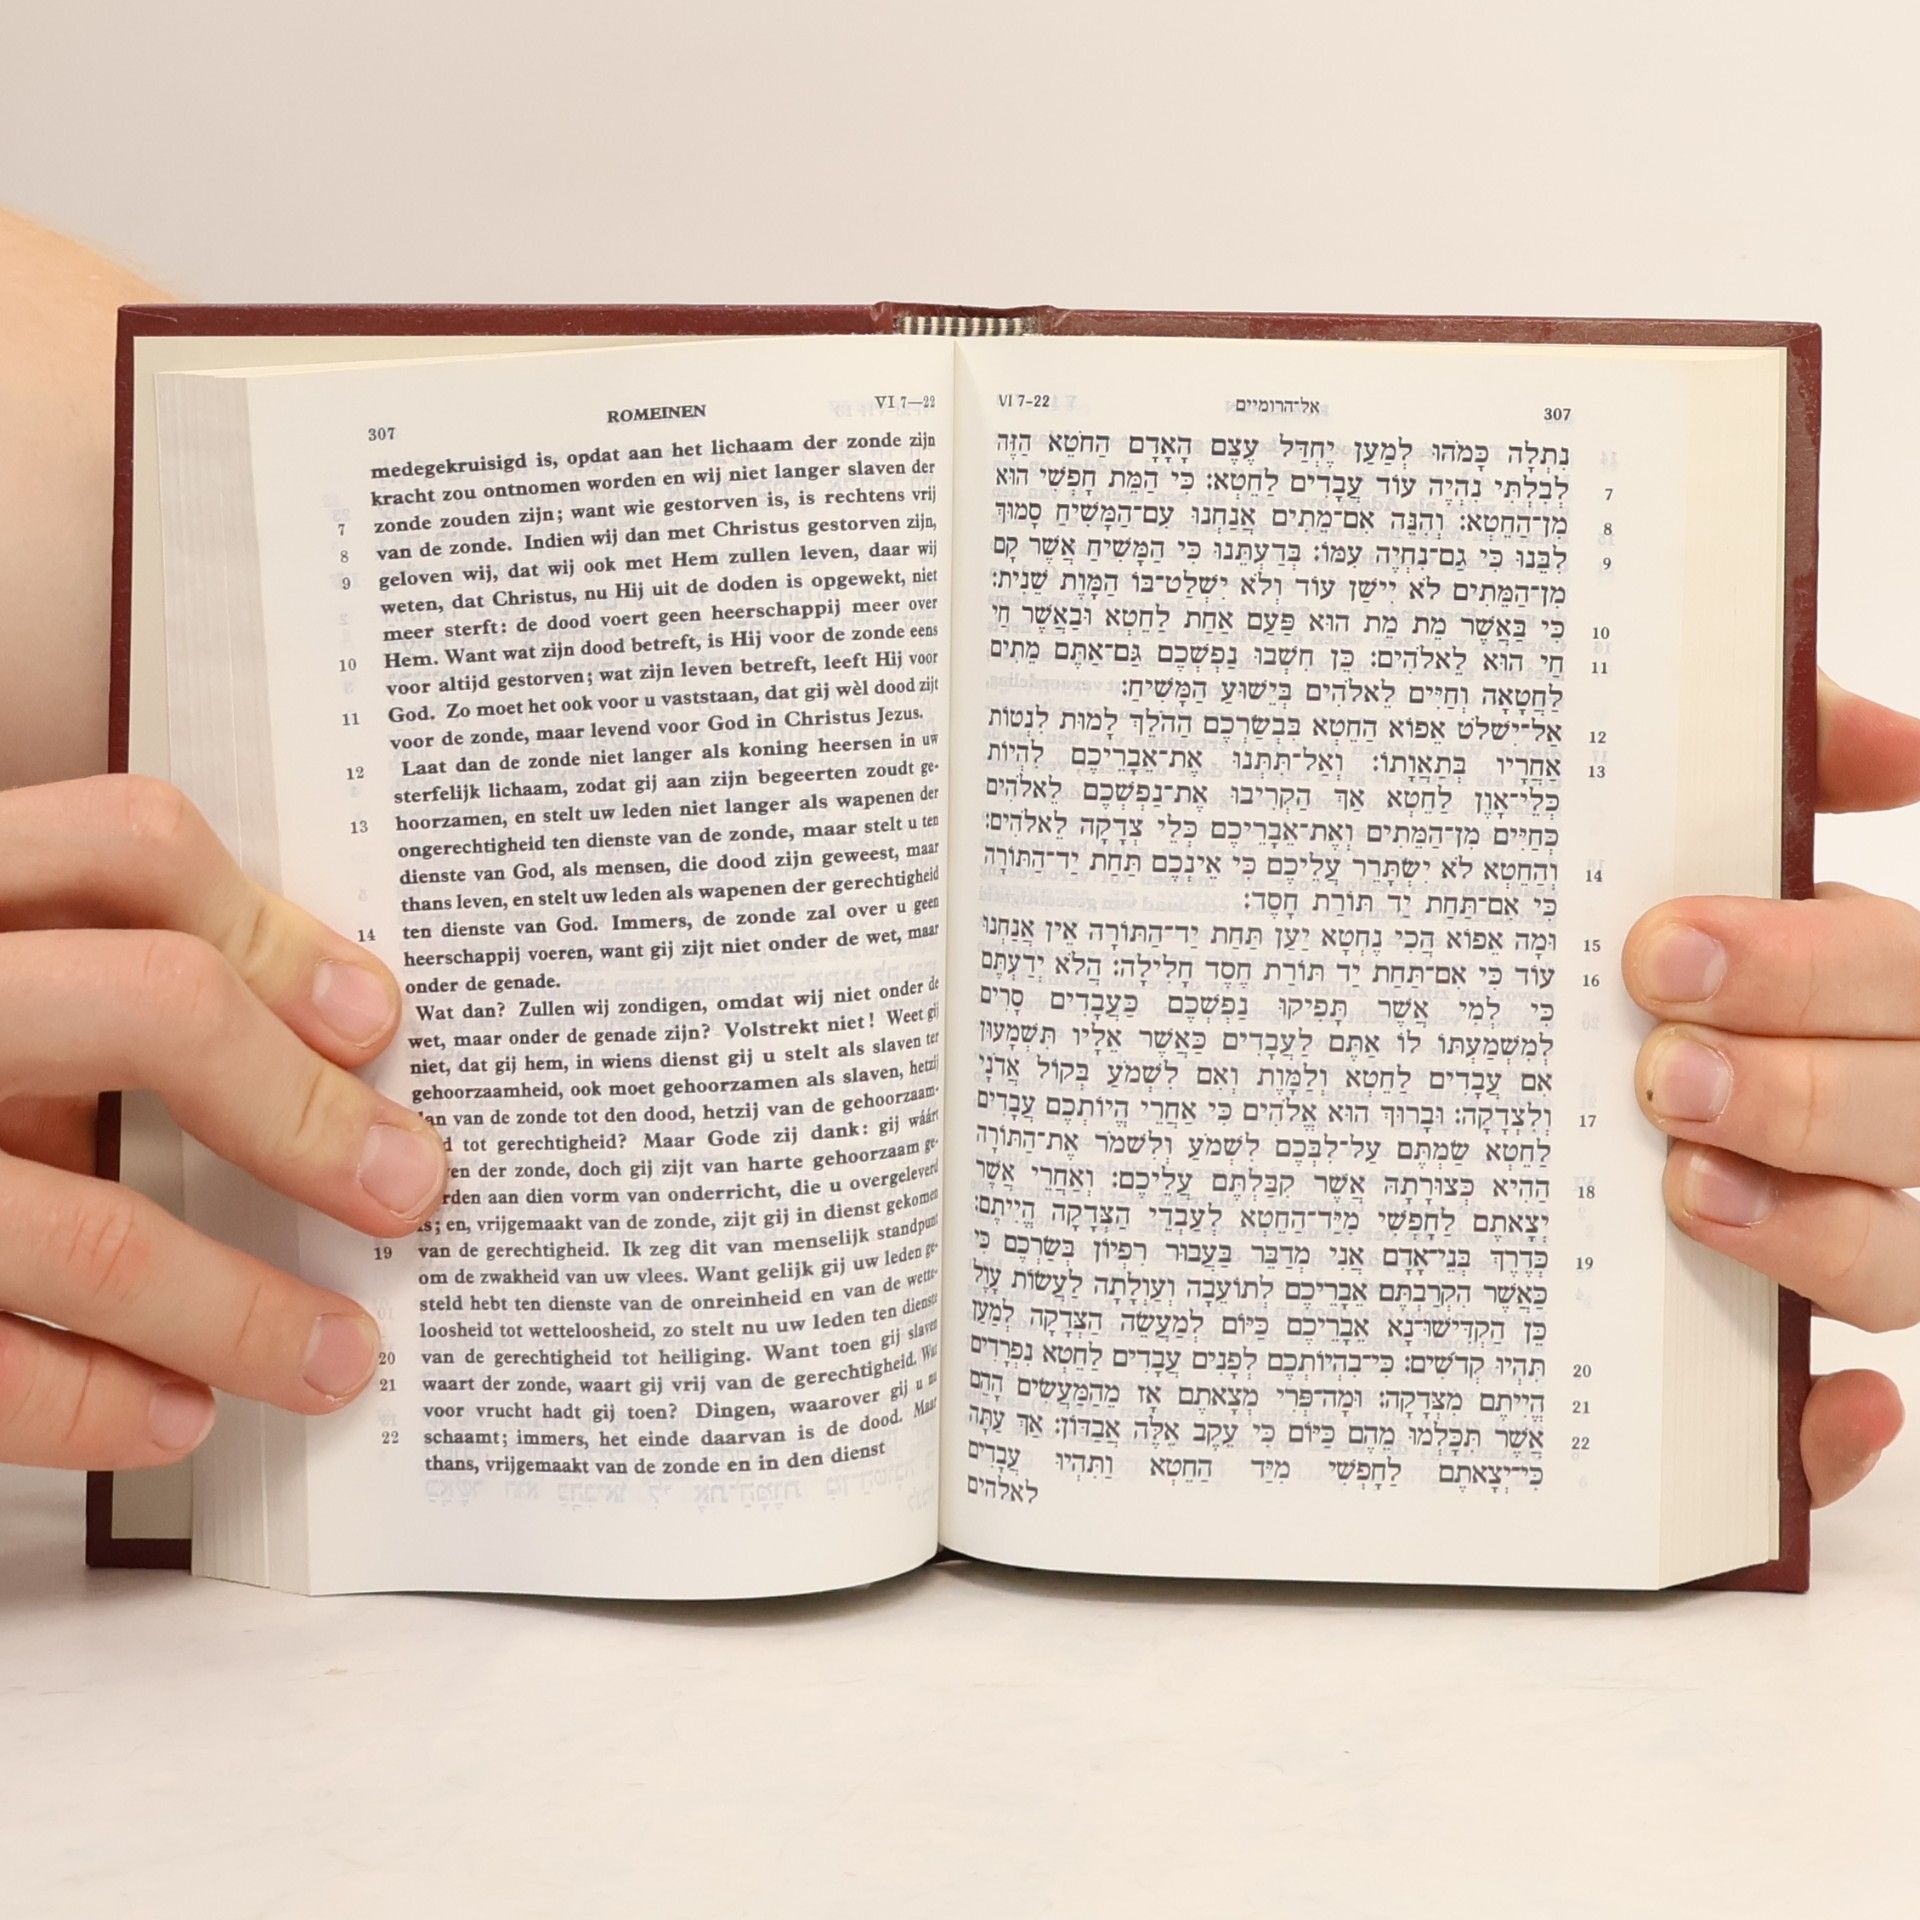 307 ROMEINEN VI 7—22
medegekruisigd is, opdat aan het lichaam der zonde zijn
kracht zou ontnomen worden en wij niet langer slaven der
7 zonde zouden zijn; want wie gestorven is, is rechtens vrij
8 van de zonde. Indien wij dan met Christus gestorven zijn,
9 geloven wij, dat wij ook met Hem zullen leven, daar wij
weten, dat Christus, nu Hij uit de doden is opgewekt, niet
meer sterft: de dood voert geen heerschappij meer over
10 Hem. Want wat zijn dood betreft, is Hij voor de zonde eens
voor altijd gestorven; wat zijn leven betreft, leeft Hij voor
11 God. Zo moet het ook voor u vaststaan, dat gij wèl dood zijt
voor de zonde, maar levend voor God in Christus Jezus.
12 Laat dan de zonde niet langer als koning heersen in uw
sterfelijk lichaam, zodat gij aan zijn begeerten zoudt ge-
13 hoorzamen, en stelt uw leden niet langer als wapenen der
ongerechtigheid ten dienste van de zonde, maar stelt u ten
dienste van God, als mensen, die dood zijn geweest, maar
thans leven, en stelt uw leden als wapenen der gerechtigheid
14 ten dienste van God. Immers, de zonde zal over u geen
heerschappij voeren, want gij zijt niet onder de wet, maar
onder de genade.
Wat dan? Zullen wij zondigen, omdat wij niet onder de
wet, maar onder de genade zijn? Volstrekt niet! Weet gij
niet, dat gij hem, in wiens dienst gij u stelt als slaven ter
gehoorzaamheid, ook moet gehoorzamen als slaven, hetzij
van de zonde tot den dood, hetzij van de gehoorzaam-
tot gerechtigheid? Maar Gode zij dank: gij wáárt
der zonde, doch gij zijt van harte gehoorzaam ge-
aan dien vorm van onderricht, die u overgeleverd
is; en, vrijgemaakt van de zonde, zijt gij in dienst gekomen
19 van de gerechtigheid. Ik zeg dit van menselijk standpunt
om de zwakheid van uw vlees. Want gelijk gij uw leden ge-
steld hebt ten dienste van de onreinheid en van de wette-
loosheid tot wetteloosheid, zo stelt nu uw leden ten dienste
20 van de gerechtigheid tot heiliging. Want toen gij slaven
21 waart der zonde, waart gij vrij van de gerechtigheid. Wat
voor vrucht hadt gij toen? Dingen, waarover gij u nu
22 schaamt; immers, het einde daarvan is de dood. Maar
thans, vrijgemaakt van de zonde en in den dienst
VI 7-22 אל־הרומיים 307
נִתְלָה כָּמֹהוּ לְמַעַן יֶחְדַּל עֶצֶם הָאָדָם הַחֹטֵא הַזֶּה
7 לְבִלְתִּי נִהְיֶה עוֹד עֲבָדִים לַחֵטְא׃ כִּי הַמֵּת חָפְשִׁי הוּא
8 מִן־הַחֵטְא׃ וְהִנֵּה אִם־מֵתִים אֲנַחְנוּ עִם־הַמָּשִׁיחַ סָמוּךְ
9 לִבֵּנוּ כִּי גַם־נִחְיֶה עִמּוֹ׃ בְּדַעְתֵּנוּ כִּי הַמָּשִׁיחַ אֲשֶׁר קָם
מִן־הַמֵּתִים לֹא יִישַׁן עוֹד וְלֹא יִשְׁלַט־בּוֹ הַמָּוֶת שֵׁנִית׃
10 כִּי בַּאֲשֶׁר מֵת מֵת הוּא פַּעַם אַחַת לַחֵטְא וּבַאֲשֶׁר חַי
11 חַי הוּא לֵאלֹהִים׃ כֵּן חִשְׁבוּ נַפְשְׁכֶם גַּם־אַתֶּם מֵתִים
לַחֲטָאָה וְחַיִּים לֵאלֹהִים בְּיֵשׁוּעַ הַמָּשִׁיחַ׃
12 אַל־יִשְׁלֹט אֵפוֹא הַחֵטְא בִּבְשַׂרְכֶם הַהֹלֵךְ לָמוּת לִנְטוֹת
13 אַחֲרָיו בְּתַאֲוָתוֹ׃ וְאַל־תִּתְּנוּ אֶת־אֵבָרֵיכֶם לִהְיוֹת
כְּלֵי־אָוֶן לַחֵטְא אַךְ הַקְרִיבוּ אֶת־נַפְשְׁכֶם לֵאלֹהִים
כְּחַיִּים מִן־הַמֵּתִים וְאֶת־אֵבָרֵיכֶם כְּלֵי צְדָקָה לֵאלֹהִים׃
14 וְהַחֵטְא לֹא יִשְׂתָּרֵר עֲלֵיכֶם כִּי אֵינְכֶם תַּחַת יַד־הַתּוֹרָה
כִּי אִם־תַּחַת יַד תּוֹרַת חָסֶד׃
15 וּמָה אֵפוֹא הֲכִי נֶחֱטָא יַעַן תַּחַת יַד־הַתּוֹרָה אֵין אֲנַחְנוּ
16 עוֹד כִּי אִם־תַּחַת יַד תּוֹרַת חֶסֶד חָלִילָה׃ הֲלֹא יְדַעְתֶּם
כִּי לְמִי אֲשֶׁר תָּפִיקוּ נַפְשְׁכֶם כַּעֲבָדִים סָרִים
לְמִשְׁמַעְתּוֹ לוֹ אַתֶּם לַעֲבָדִים כַּאֲשֶׁר אֵלָיו תִּשְׁמָעוּן
אִם עֲבָדִים לַחֵטְא וְלַמָּוֶת וְאִם לִשְׁמֹעַ בְּקוֹל אֲדֹנָי
17 וְלִצְדָקָה׃ וּבָרוּךְ הוּא אֱלֹהִים כִּי אַחֲרֵי הֱיוֹתְכֶם עֲבָדִים
לַחֵטְא שַׂמְתֶּם עַל־לִבְּכֶם לִשְׁמֹעַ וְלִשְׁמֹר אֶת־הַתּוֹרָה
18 הַהִיא כְּצוּרָתָהּ אֲשֶׁר קִבַּלְתֶּם עֲלֵיכֶם׃ וְאַחֲרֵי אֲשֶׁר
יְצָאתֶם לַחָפְשִׁי מִיַּד־הַחֵטְא לְעַבְדֵי הַצְּדָקָה הֱיִיתֶם׃
19 כְּדֶרֶךְ בְּנֵי־אָדָם אֲנִי מְדַבֵּר בַּעֲבוּר רִפְיוֹן בְּשַׂרְכֶם כִּי
כַּאֲשֶׁר הִקְרַבְתֶּם אֵבָרֵיכֶם לְתוֹעֵבָה וְעַוְלָתָה לַעֲשׂוֹת עָוֶל
כֵּן הַקְדִּישׁוּ־נָא אֵבָרֵיכֶם כַּיּוֹם לְמַעֲשֵׂה הַצְּדָקָה לְמַעַן
20 תִּהְיוּ קְדֹשִׁים׃ כִּי־בִהְיוֹתְכֶם לְפָנִים עֲבָדִים לַחֵטְא נִפְרָדִים
21 הֱיִיתֶם מִצְּדָקָה׃ וּמַה־פְּרִי מְצָאתֶם אָז מֵהַמַּעֲשִׂים הָהֵם
22 אֲשֶׁר תִּכָּלְמוּ מֵהֶם כַּיּוֹם כִּי עֵקֶב אֵלֶּה אֲבַדּוֹן׃ אַךְ עַתָּה
כִּי־יְצָאתֶם לַחָפְשִׁי מִיַּד הַחֵטְא וַתִּהְיוּ עֲבָדִים
לאלהים